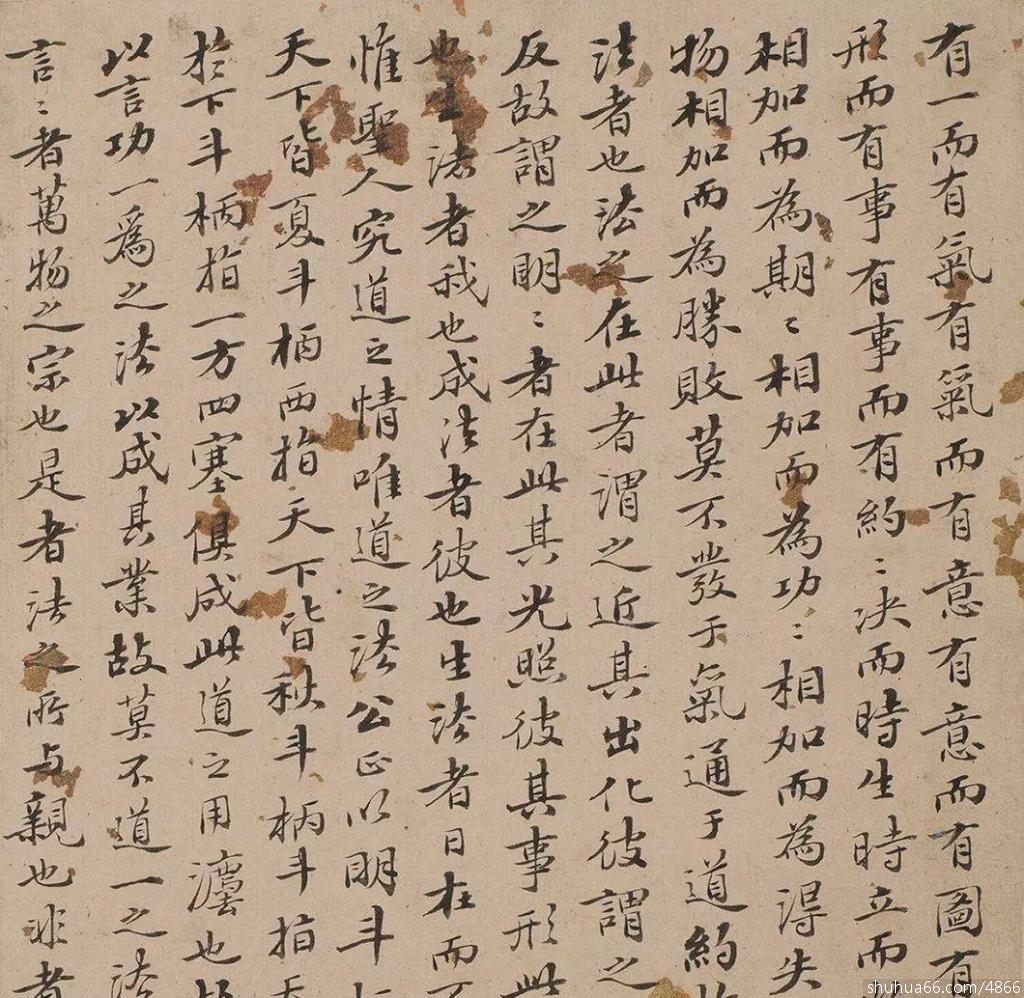 有一而有氣有氣而有意有意而有圖有
形而有事有事而有約〻决而時生時立而
相加而為期〻相加而為功〻相加而為得失
物相加而為勝敗莫不發于氣通于道約
法者也法之在此者謂之近其出化彼謂之
反故謂之明〻者在此其光照彼其事形此
也生法者我也成法者彼也生法者日在而
惟聖人究道之情唯道之法公正以明斗
天下皆夏斗柄西指天下皆秋斗柄斗指天
於下斗柄指一方四塞俱成此道之用灋也
以言功一爲之法以成其業故莫不道一之法
言〻者萬物之宗也是者法之所与親也非者
shuhua66.com/4866